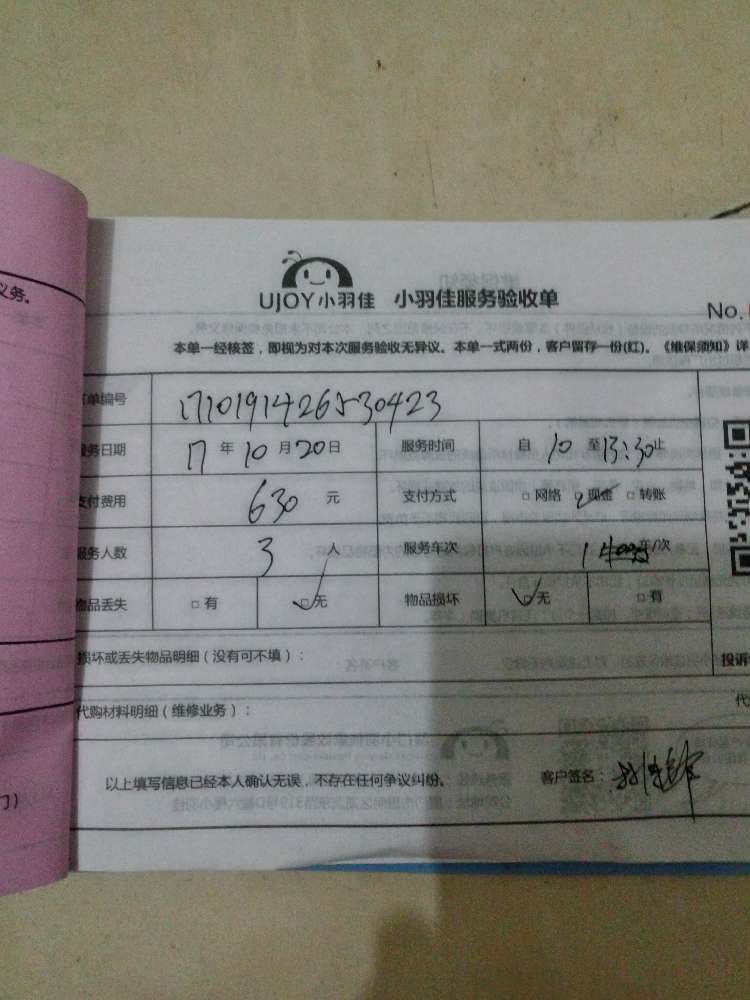 义务。
UJOY小羽佳 小羽佳服务验收单
No.
本单一经核签，即视为对本次服务验收无异议。本单一式两份，客户留存一份(红)。《维保须知》详
单编号 17101914265530423
服务日期 17年10月20日 服务时间 自10至13:30止
支付费用 630元 支付方式 □网络 □现金 □转账
服务人数 3人 服务车次 1 车/次
物品丢失 □有 □无 物品损坏 □无 □有
损坏或丢失物品明细（没有可不填）： 投诉
代购材料明细（维修业务）： 代
以上填写信息已经本人确认无误，不存在任何争议纠纷。 客户签名：
门）